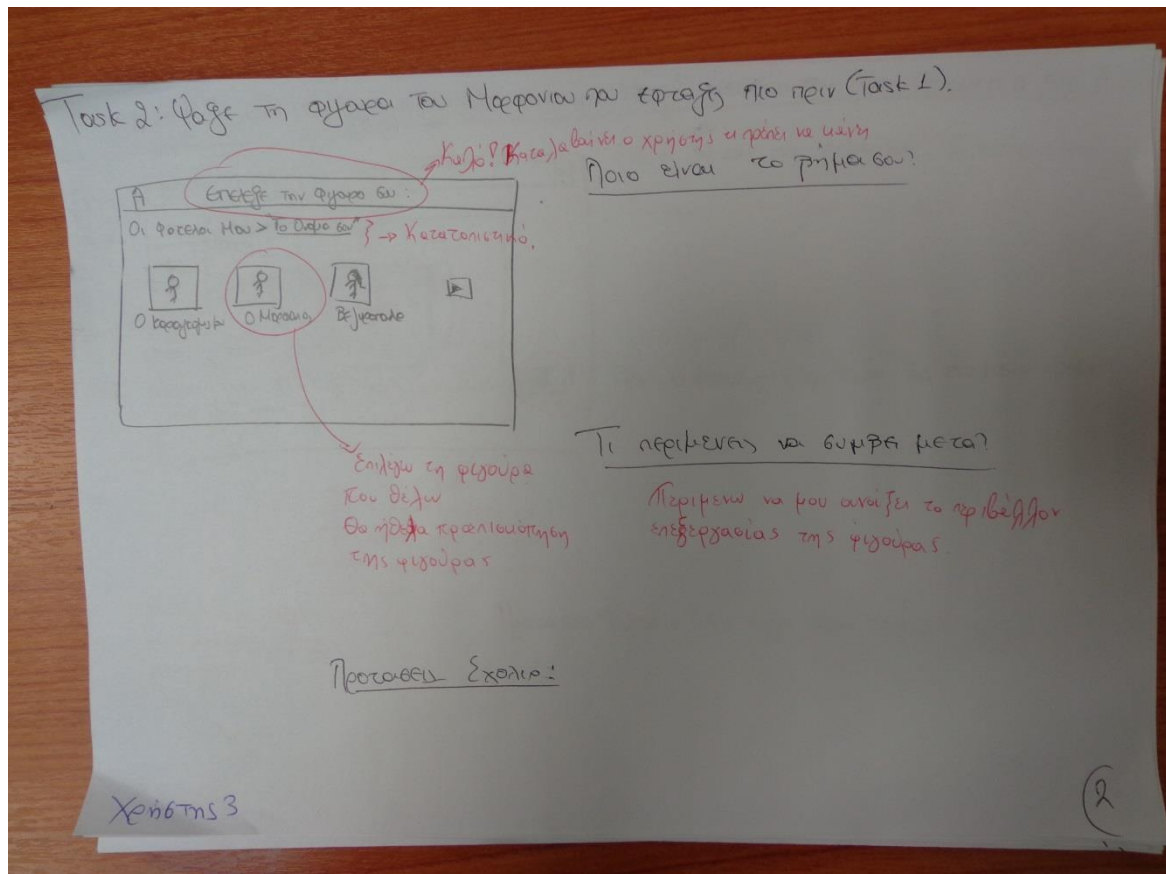 Task 2: Ψαξε τη φιγουρα του Μορφονιου που εφταξες πιο πριν (Task 1).
Καλό! Καταλαβαίνει ο χρήστης τι πρέπει να κάνει
Ποιο ειναι το βήμα σου?
Επελεξε την φιγουρα σου :
Οι Φακελοι Μου > "Το Ονομα σου" } → Κατατοπιστικό.
Ο Μορφονιος
Τι περιμενεις να συμβει μετα?
Επιλέγω τη φιγούρα
που θέλω
Θα ήθελα προεπισκόπηση
της φιγούρας
Περιμενω να μου ανοίξει το περιβάλλον
επεξεργασίας της φιγούρας
Προτασεις Σχολια:
Χρήστης 3
2